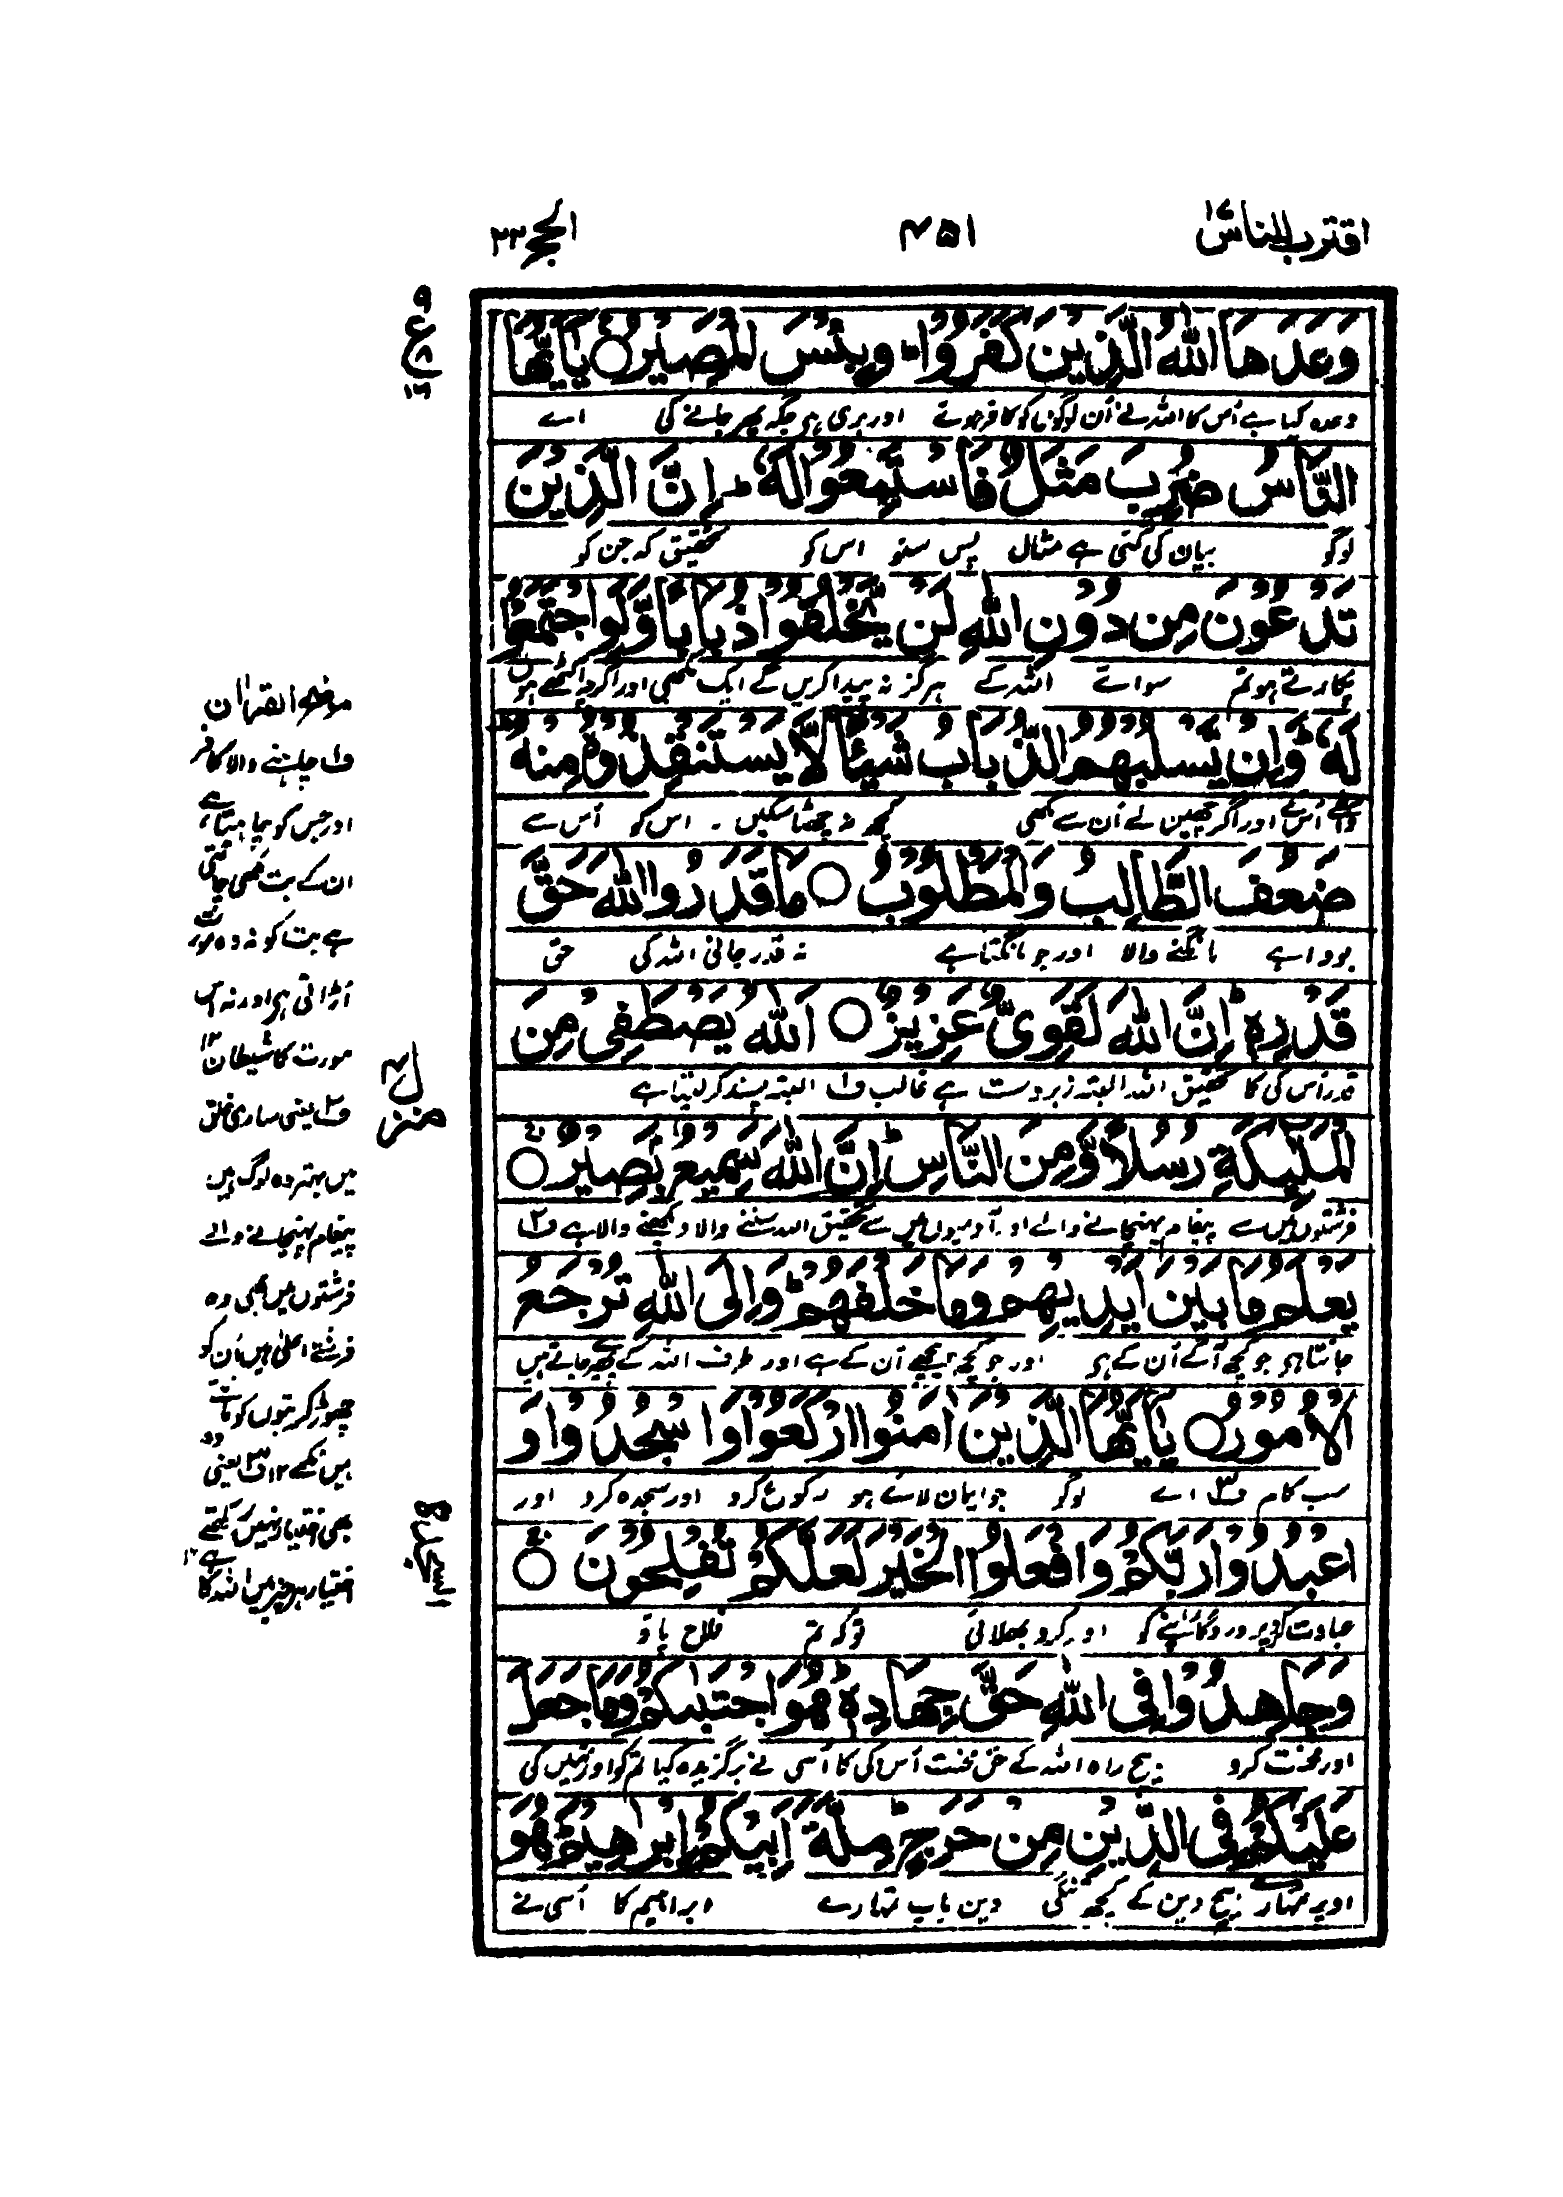 اقترب للناس ١٧
۴۵۱
الحج ٢٢
وَعَدَهَا اللّٰهُ الَّذِيْنَ كَفَرُوْا ؕ وَبِئْسَ الْمَصِيْرُ ○ يٰۤاَيُّهَا
وعدہ کیا ہے اُس کا اللہ نے اُن لوگوں کو کافر ہوئے اور بری ہی جگہ پھر جانے کی اے
النَّاسُ ضُرِبَ مَثَلٌ فَاسْتَمِعُوْا لَهٗ ؕ اِنَّ الَّذِيْنَ
لوگو بیان کی گئی ہے مثال پس سنو اس کو تحقیق کہ جن کو
تَدْعُوْنَ مِنْ دُوْنِ اللّٰهِ لَنْ يَّخْلُقُوْا ذُبَابًا وَّلَوِ اجْتَمَعُوْا
پکارتے ہو تم سوائے اللہ کے ہرگز نہ پیدا کریں گے ایک مکھی اور اگرچہ اکٹھے ہوں
لَهٗ ؕ وَاِنْ يَّسْلُبْهُمُ الذُّبَابُ شَيْئًا لَّا يَسْتَنْقِذُوْهُ مِنْهُ ؕ
واسطے اُس کے اور اگر چھین لے اُن سے مکھی کچھ نہ چھڑا سکیں۔ اس کو اُس سے
ضَعُفَ الطَّالِبُ وَالْمَطْلُوْبُ ○ مَا قَدَرُوا اللّٰهَ حَقَّ
بودا ہے مانگنے والا اور جو مانگتا ہے نہ قدر جانی اللہ کی حق
قَدْرِهٖ ؕ اِنَّ اللّٰهَ لَقَوِيٌّ عَزِيْزٌ ○ اَللّٰهُ يَصْطَفِيْ مِنَ
قدر اُس کی کا تحقیق اللہ البتہ زبردست ہے غالب ف۱ البتہ پسند کر لیتا ہے
الْمَلٰٓئِكَةِ رُسُلًا وَّمِنَ النَّاسِ ؕ اِنَّ اللّٰهَ سَمِيْعٌۢ بَصِيْرٌ ○
فرشتوں میں سے پیغام پہنچانے والے اور آدمیوں میں سے تحقیق اللہ سننے والا دیکھنے والا ہے ف۲
يَعْلَمُ مَا بَيْنَ اَيْدِيْهِمْ وَمَا خَلْفَهُمْ ؕ وَاِلَى اللّٰهِ تُرْجَعُ
جانتا ہی جو کچھ آگے اُن کے ہی اور جو کچھ پیچھے اُن کے ہے اور طرف اللہ کے پھیرے جاتے ہیں
الْاُمُوْرُ ○ يٰۤاَيُّهَا الَّذِيْنَ اٰمَنُوا ارْكَعُوْا وَاسْجُدُوْا وَ
سب کام ف۳ اے لوگو جو ایمان لائے ہو رکوع کرو اور سجدہ کرو اور
اعْبُدُوْا رَبَّكُمْ وَافْعَلُوا الْخَيْرَ لَعَلَّكُمْ تُفْلِحُوْنَ ○
عبادت کرو پروردگار اپنے کو اور کرو بھلائی تو کہ تم فلاح پاؤ
وَجَاهِدُوْا فِى اللّٰهِ حَقَّ جِهَادِهٖ ؕ هُوَ اجْتَبٰىكُمْ وَمَا جَعَلَ
اور محنت کرو بیچ راہ اللہ کے حق محنت اُس کی کا اُسی نے برگزیدہ کیا تم کو اور نہیں کی
عَلَيْكُمْ فِى الدِّيْنِ مِنْ حَرَجٍ ؕ مِلَّةَ اَبِيْكُمْ اِبْرٰهِيْمَ ؕ هُوَ
اوپر تمہارے بیچ دین کے کچھ تنگی دین باپ تمہارے ابراہیم کا اُسی نے
۹
ع
۸
۱۶
منزل ۴
موضح القرآن
ف۱ چاہنے والا کافر
اور جس کو چاہتا ہے
ان کے بت مکھی چاٹتی
ہے بت کو نہ وہ مورت
اُڑاتی ہی اور نہ اس
مورت کا شیطان ۱۲
ف۲ یعنی ساری خلق
میں بہتر وہ لوگ ہیں
پیغام پہنچانے والے
فرشتوں میں بھی وہ
فرشتے اعلیٰ ہیں اُن کو
چھوڑ کر بتوں کو مانتے
ہیں نکمے ۱۲ ف۳ یعنی وہ
بھی اختیار نہیں رکھتے
اختیار ہر چیز میں اللہ کا ہے ۱۲